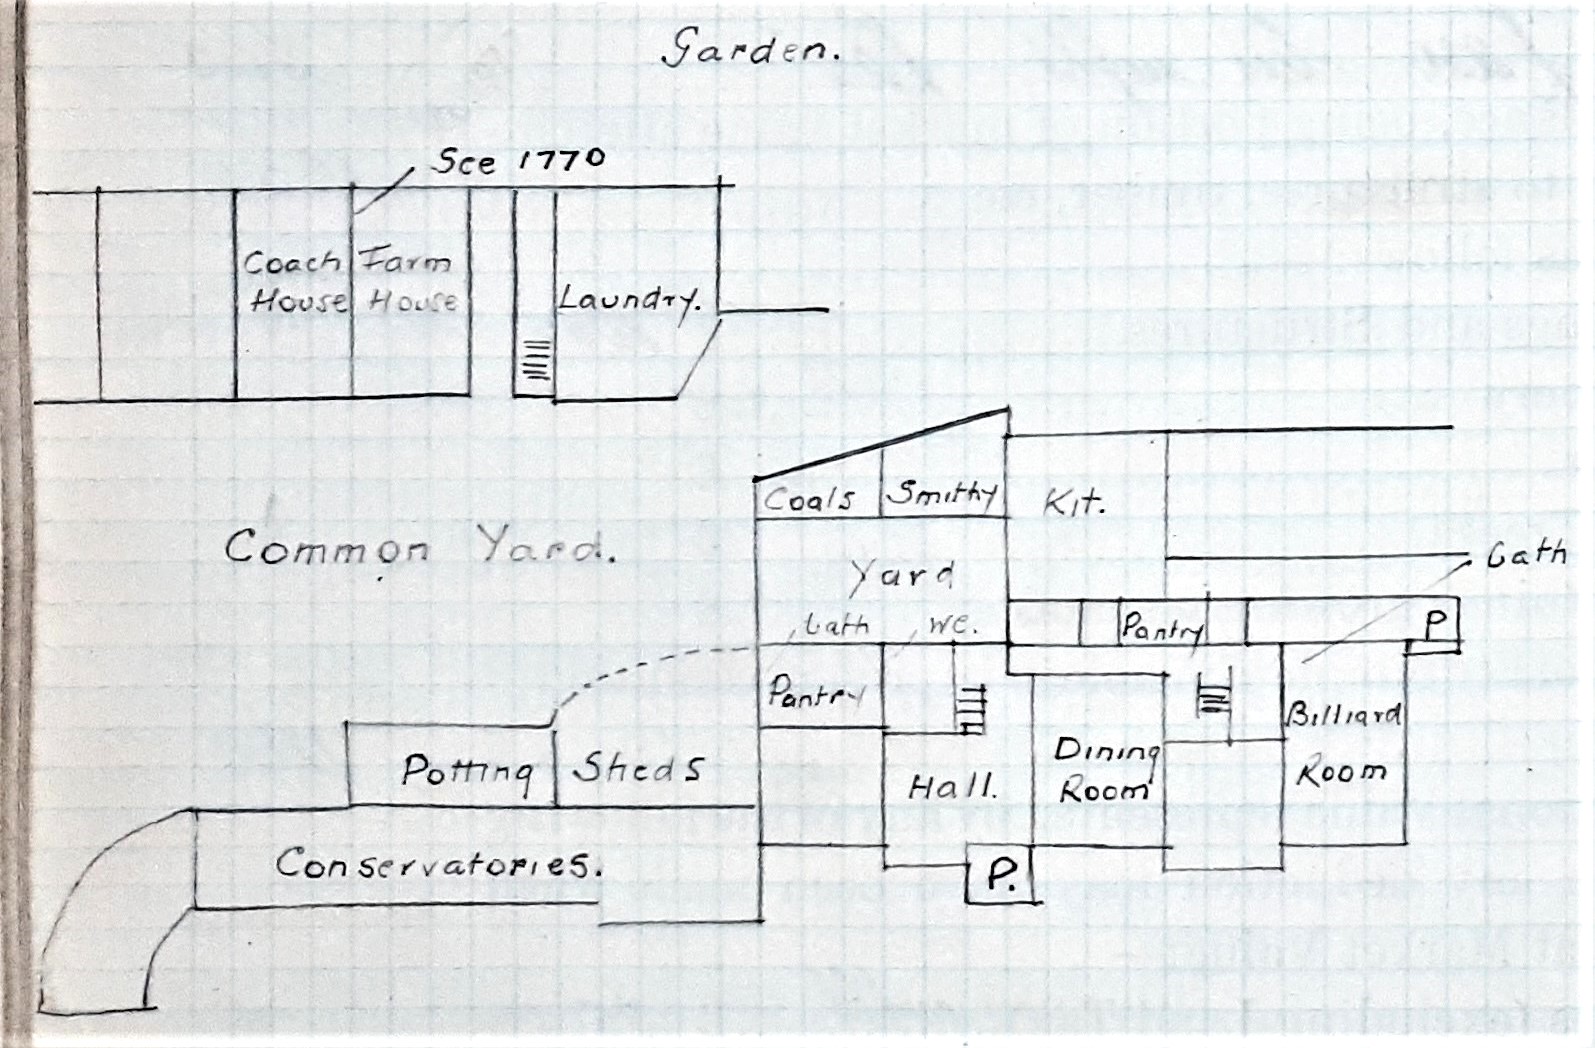 Garden.
See 1770
Coach
House
Farm
House
Laundry.
Coals
Smithy
Kit.
Common Yard.
Yard
bath
bath
W.C.
Pantry
P
Pantry
Billiard
Room
Dining
Room
Potting Sheds
Hall.
Conservatories.
P.